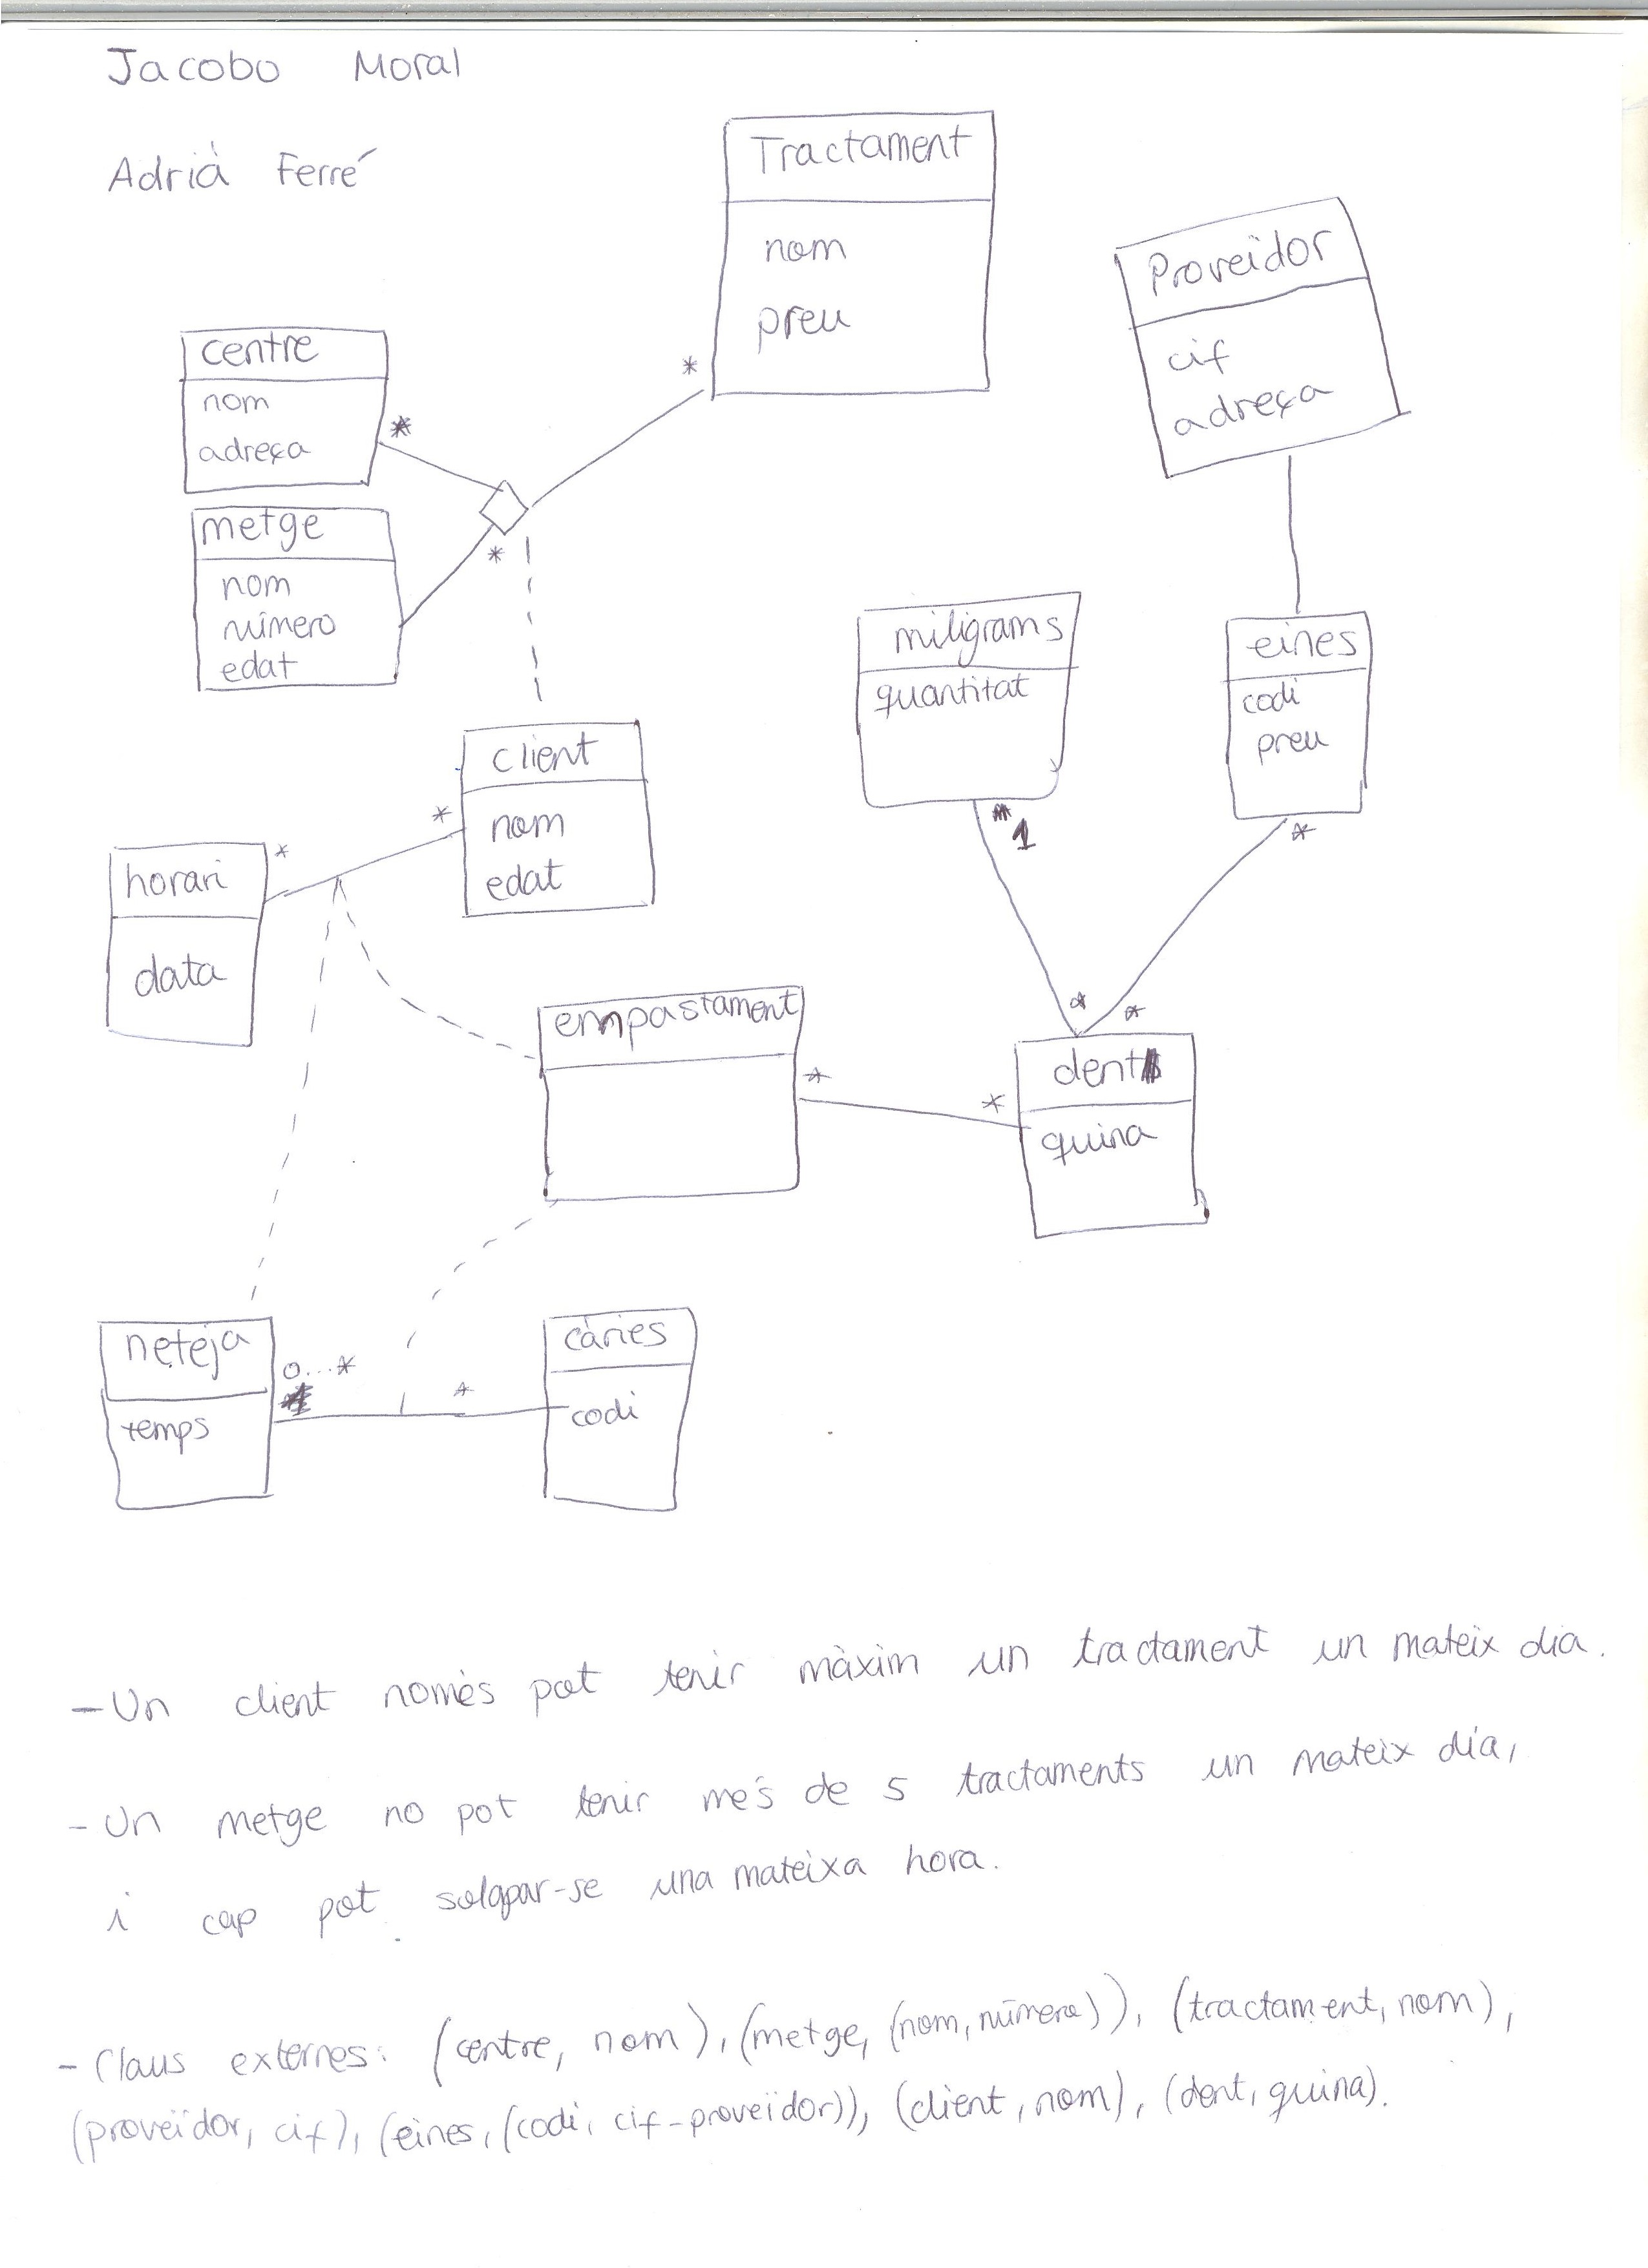 Jacobo Moral
Adrià Ferré
Tractament
nom
preu
Proveïdor
cif
adreça
centre
nom
adreça
*
*
metge
nom
número
edat
*
miligrams
quantitat
1
eines
codi
preu
*
client
nom
edat
*
horari
data
*
empastament
*
dent
quina
*
*
*
neteja
temps
0...*
càries
codi
*
- Un client només pot tenir màxim un tractament un mateix dia.
- Un metge no pot tenir més de 5 tractaments un mateix dia,
i cap pot solapar-se una mateixa hora.
- Claus externes: (centre, nom), (metge, (nom, número)), (tractament, nom),
(proveïdor, cif), (eines, (codi, cif-proveïdor)), (client, nom), (dent, quina).